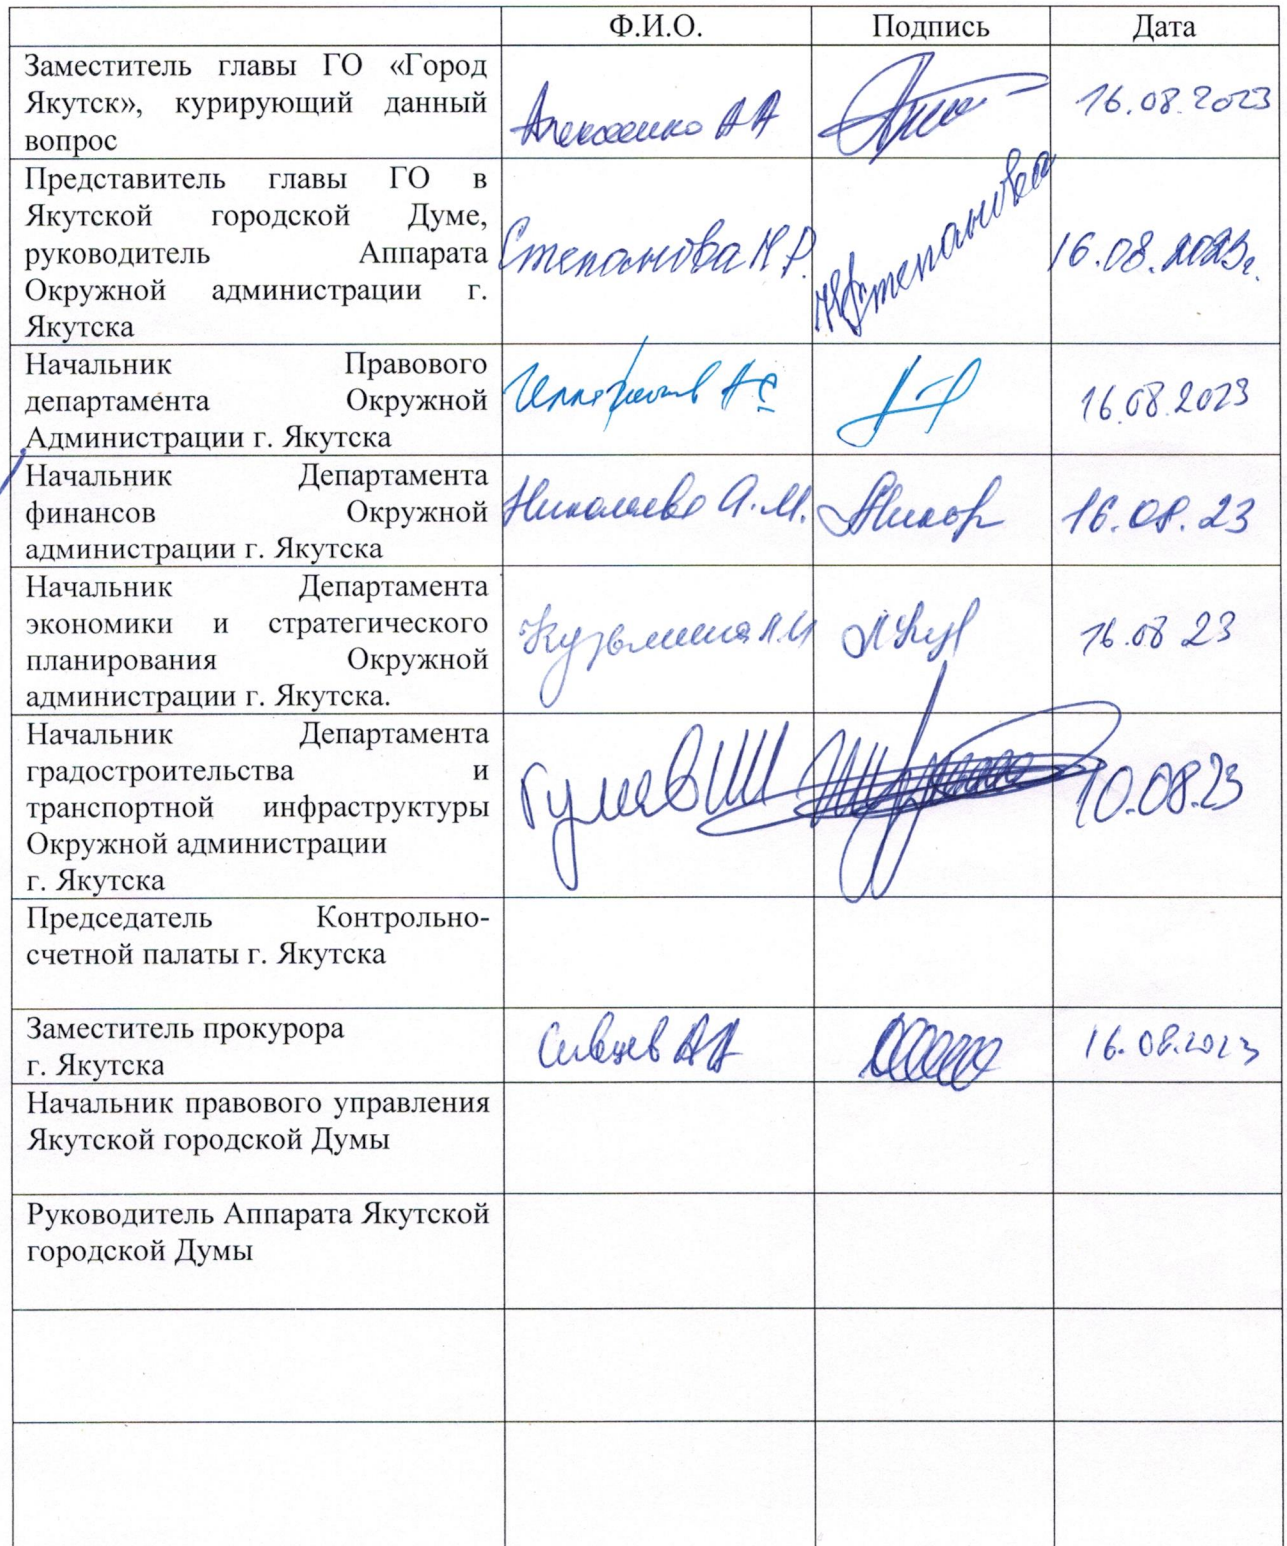 Ф.И.О. Подпись Дата
Заместитель главы ГО «Город
Якутск», курирующий данный
вопрос
АА
16.08.2023
Представитель главы ГО в
Якутской городской Думе,
руководитель Аппарата
Окружной администрации г.
Якутска
Степанова Н.Р.
Степанова
16.08.2023г.
Начальник Правового
департамента Окружной
Администрации г. Якутска
16.08.2023
Начальник Департамента
финансов Окружной
администрации г. Якутска
Николаева А.М.
16.08.23
Начальник Департамента
экономики и стратегического
планирования Окружной
администрации г. Якутска.
Кузьмина
16.08 23
Начальник Департамента
градостроительства и
транспортной инфраструктуры
Окружной администрации
г. Якутска
10.08.23
Председатель Контрольно-
счетной палаты г. Якутска
Заместитель прокурора
г. Якутска
Сивцев
16.08.2023
Начальник правового управления
Якутской городской Думы
Руководитель Аппарата Якутской
городской Думы